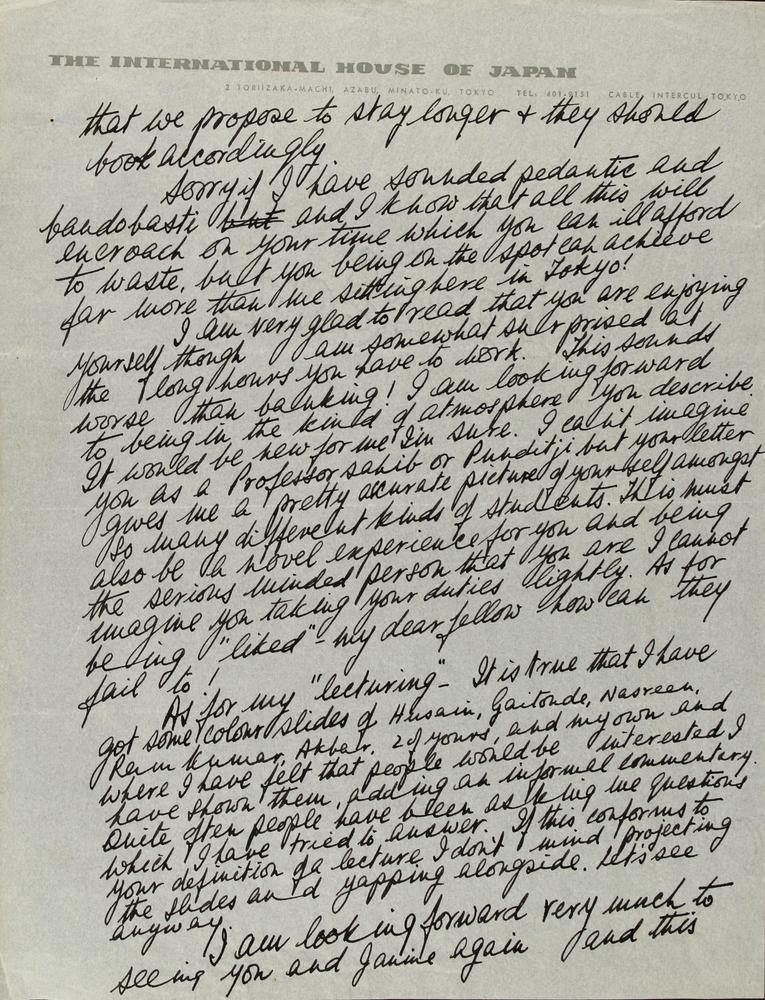 THE INTERNATIONAL HOUSE OF JAPAN
2 TORIIZAKA-MACHI, AZABU, MINATO-KU, TOKYO TEL: 401-9151 CABLE, INTERCUL, TOKYO
that we propose to stay longer & they should
book accordingly.
Sorry if I have sounded pedantic and
bandobasti but and I know that all this will
encroach on your time which you can ill afford
to waste, but you being on the spot can achieve
far more than me sitting here in Tokyo!
I am very glad to read that you are enjoying
yourself though I am somewhat surprised at
the long hours you have to work. This sounds
worse than banking! I am looking forward
to being in the kind of atmosphere you describe.
It would be new for me I'm sure. I can't imagine
you as a Professor sahib or Punditji but your letter
gives me a pretty accurate picture of yourself amongst
so many different kinds of students. This must
also be a novel experience for you and being
the serious minded person that you are I cannot
imagine you taking your duties lightly. As for
being "liked" - my dear fellow how can they
fail to!
As for my "lecturing" - It is true that I have
got some colour slides of Husain, Gaitonde, Nasreen,
Ram Kumar, Akbar, 2 of yours, and my own and
where I have felt that people would be interested I
have shown them, adding an informal commentary.
Quite often people have been asking me questions
which I have tried to answer. If this conforms to
your definition of a lecture I don't mind projecting
the slides and yapping alongside. Let's see
anyway.
I am looking forward very much to
seeing you and Janine again and this